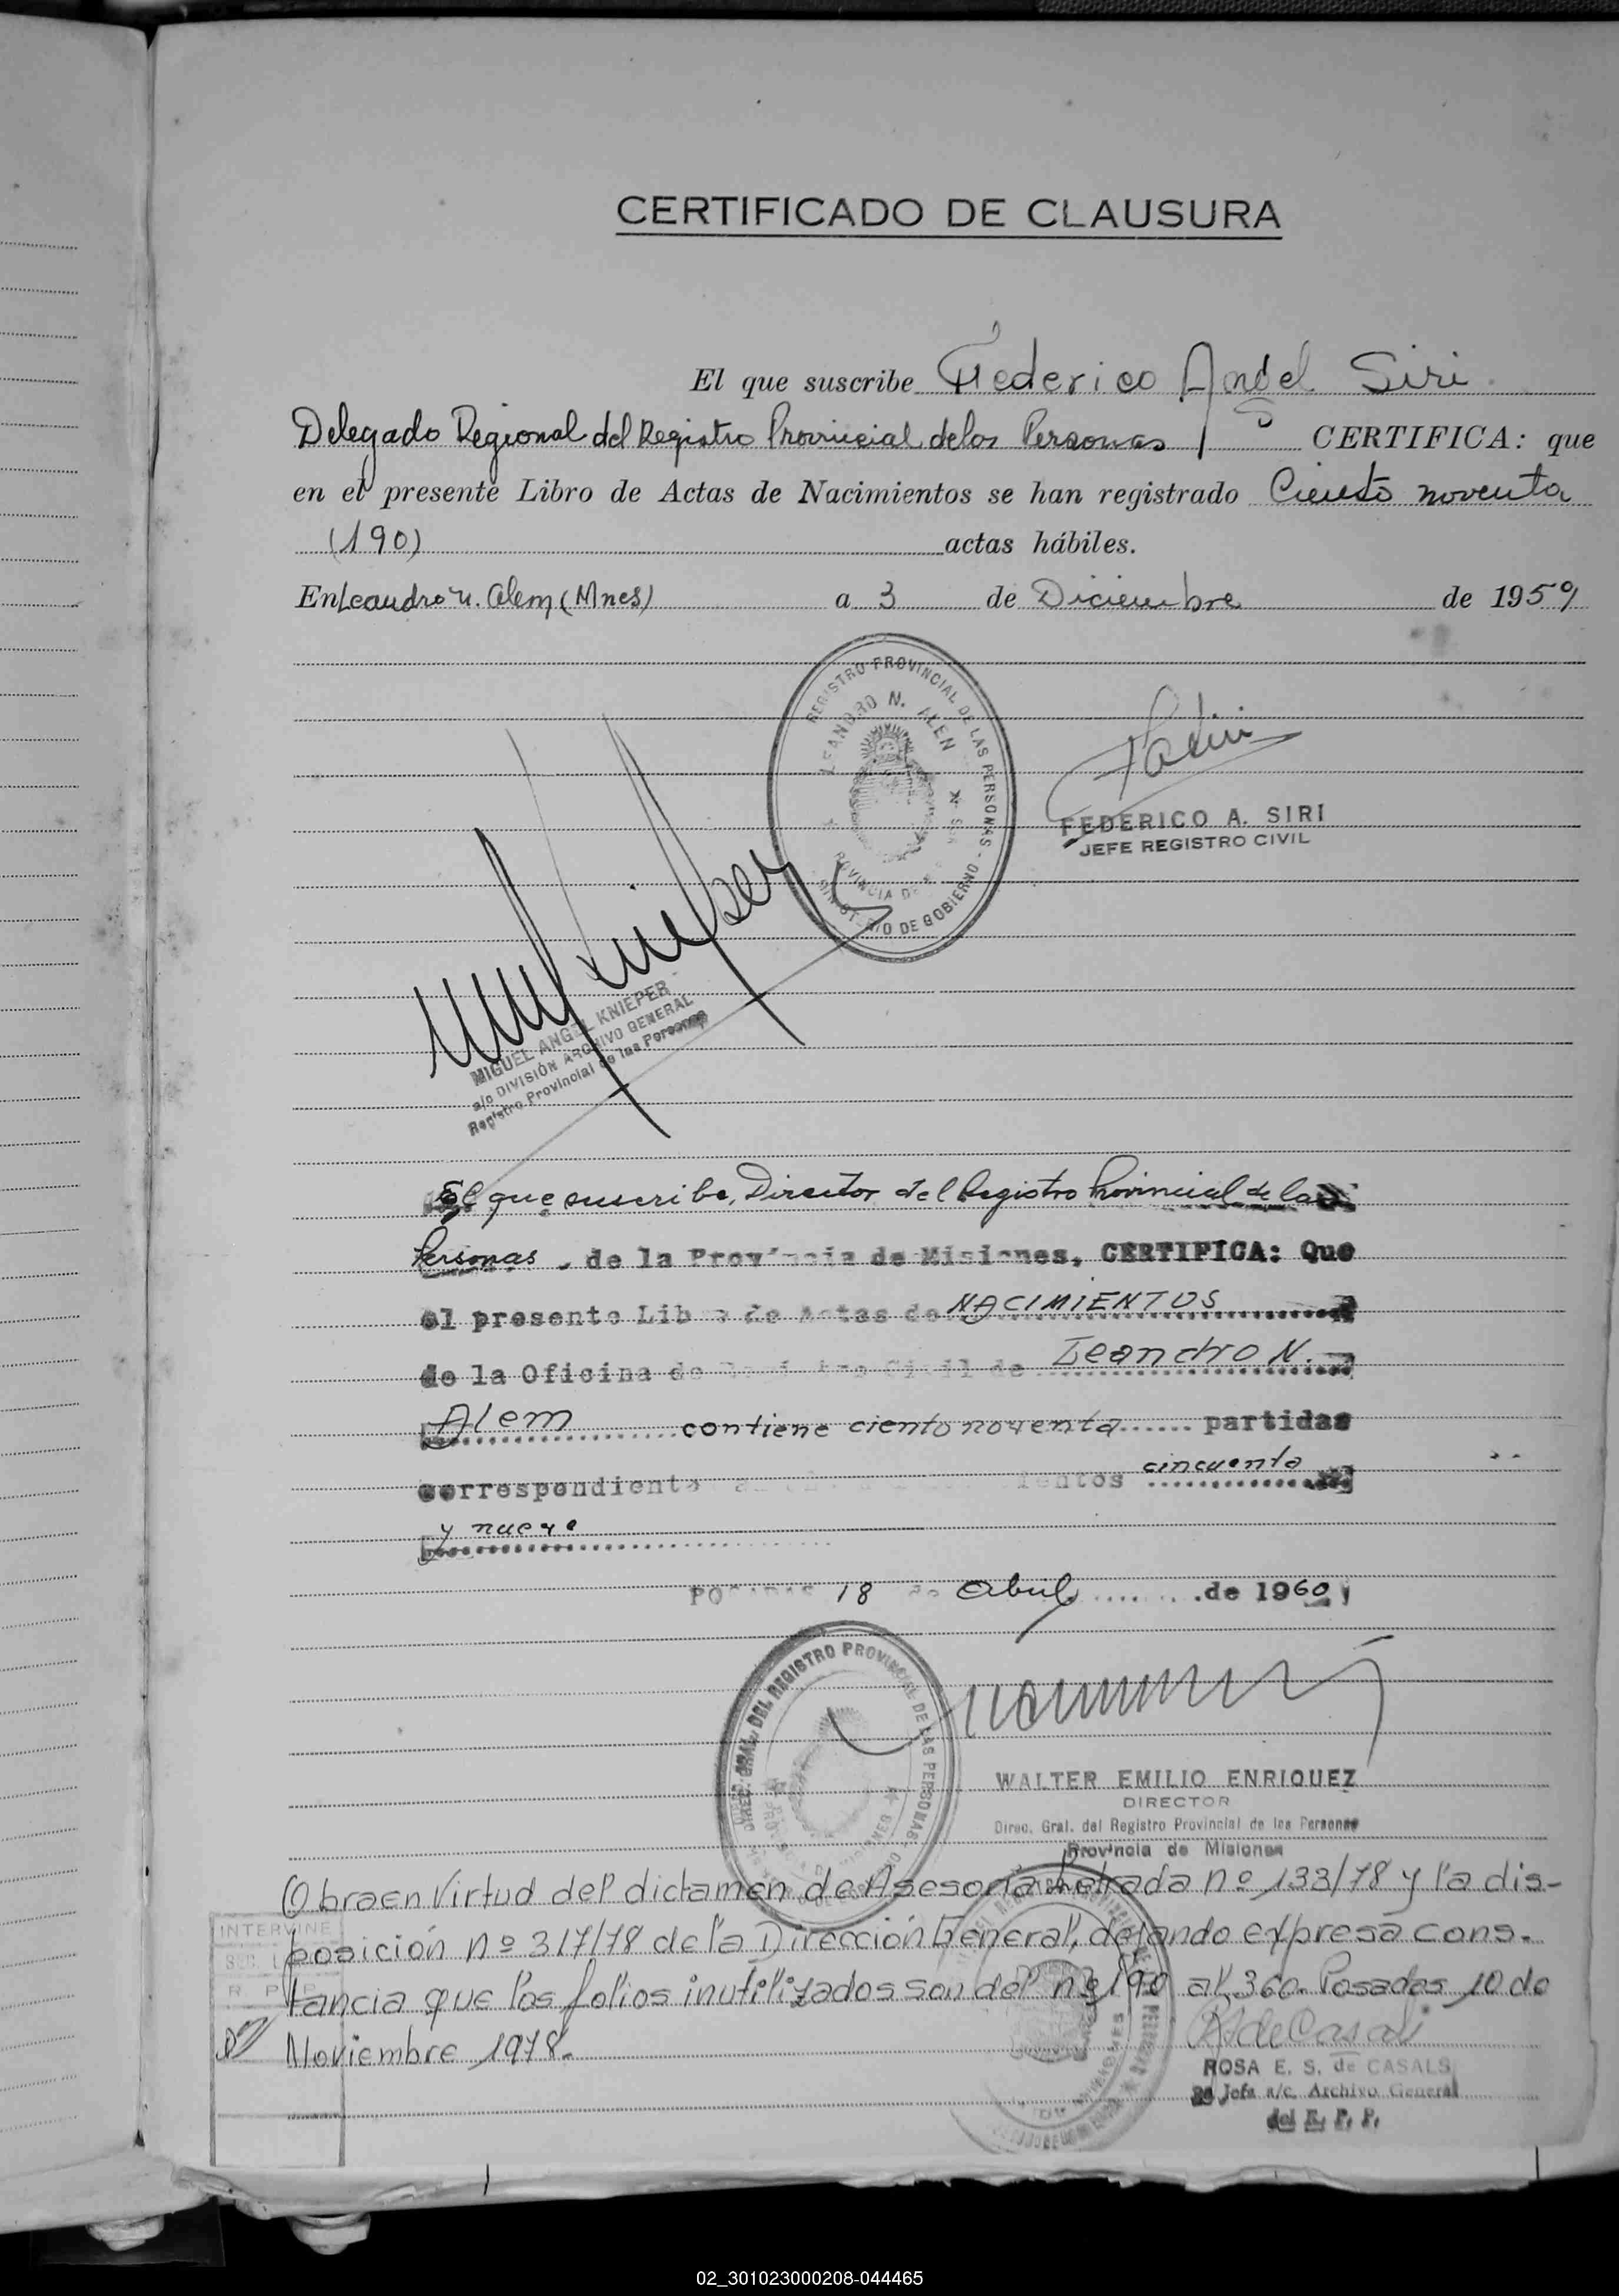 CERTIFICADO DE CLAUSURA
El que suscribe Federico Angel Siri
Delegado Regional del Registro Provincial de las Personas CERTIFICA: que
en el presente Libro de Actas de Nacimientos se han registrado Ciento noventa
(190) actas hábiles.
En Leandro N. Alem (Mnes) a 3 de Diciembre de 1959
REGISTRO PROVINCIAL DE LAS PERSONAS - MINISTERIO DE GOBIERNO
LEANDRO N. ALEN
PROVINCIA DE
FEDERICO A. SIRI
JEFE REGISTRO CIVIL
MIGUEL ANGEL KNIEPER
a/c DIVISIÓN ARCHIVO GENERAL
Registro Provincial de las Personas
El que suscribe, Director del Registro Provincial de las
Personas, de la Provincia de Misiones, CERTIFICA: Que
el presente Libro de Actas de NACIMIENTOS
de la Oficina de Registro Civil de Leandro N.
Alem contiene ciento noventa partidas
correspondiente cincuenta
y nueve
Posadas 18 de Abril de 1960
DIREC. GRAL. DEL REGISTRO PROVINCIAL DE LAS PERSONAS
WALTER EMILIO ENRIQUEZ
DIRECTOR
Direc. Gral. del Registro Provincial de las Personas
Provincia de Misiones
Obra en Virtud del dictamen de Asesoría Letrada nº 133/78 y la dis-
INTERVINE
posición nº 317/78 de la Dirección General, dejando expresa cons-
R. P.
tancia que los folios inutilizados son del nº 190 al 360. Posadas 10 de
Noviembre 1978.
ROSA E. S. de CASALS
Jefa a/c. Archivo General
del R. P. P.
02_301023000208-044465